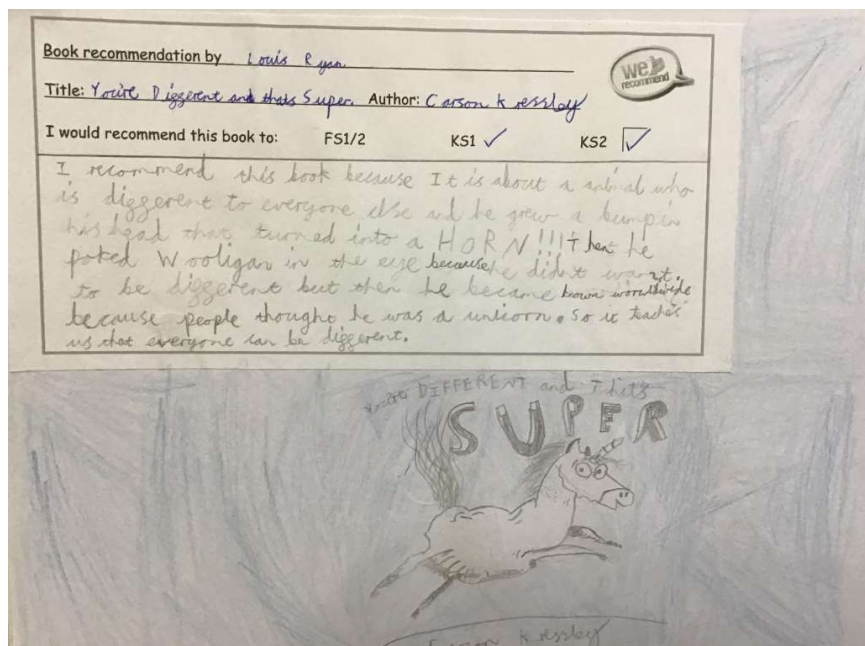 Book recommendation by Louis Ryan
we recommend
Title: You're Diggerent and thats Super. Author: Carson Kressley
I would recommend this book to: FS1/2 KS1 ✓ KS2 ✓
I recommend this book because It is about a animal who
is diggerent to everyone else and he grew a bump in
his head that turned into a HORN!!! Then he
poked Wooligan in the eye because he didn't want
to be diggerent but then he became known worldwide
because people thought he was a unicorn. So it teaches
us that everyone can be diggerent.
DIFFERENT and Thats
SUPER
Carson Kressley